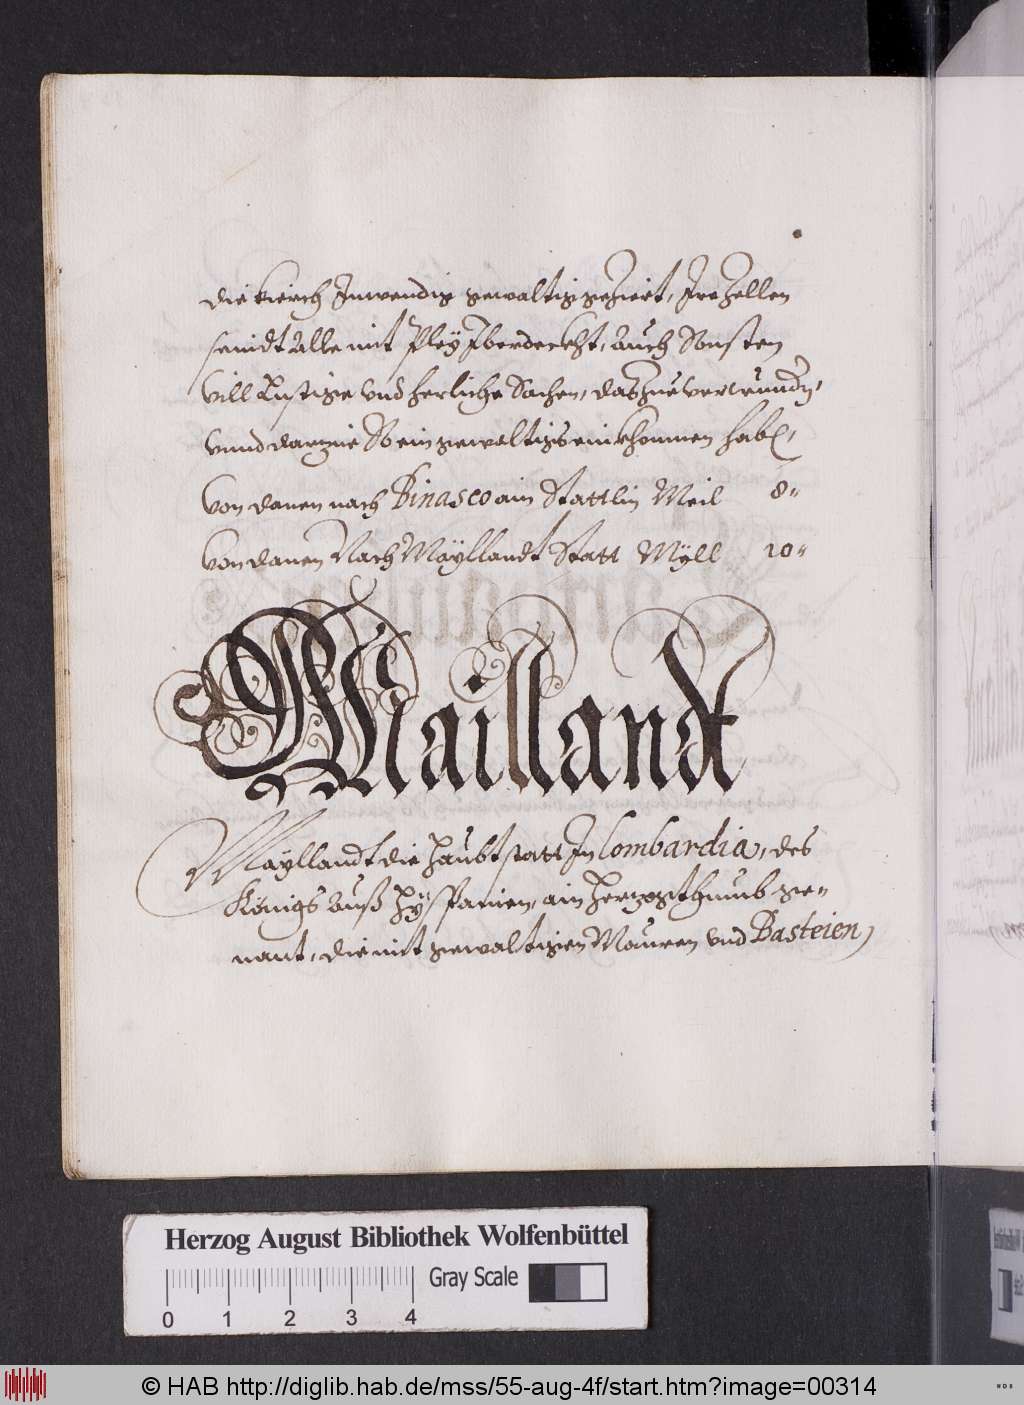 die Kierch Inwendig gewaltig geziert, Ire Zellen
seindt alle mit Pley Iberdeckht, auch Sonsten
vill Lustige vnd herliche Sachen, das Zue verwundern,
vnnd darzue So ein gewaltigs einkhomen hab,
von danen nach Binasco ain Stattlin Meil 8"
von danen Nach Mayllandt Statt Myll 10"
Mailandt
Mayllandt die Haubt statt In Lombardia, des
Königs auß Hÿspanien, ain Herzogthumb ge=
nant, die mit gewaltigen Mauren vnd Basteien,
Herzog August Bibliothek Wolfenbüttel
Gray Scale
0 1 2 3 4
© HAB http://diglib.hab.de/mss/55-aug-4f/start.htm?image=00314